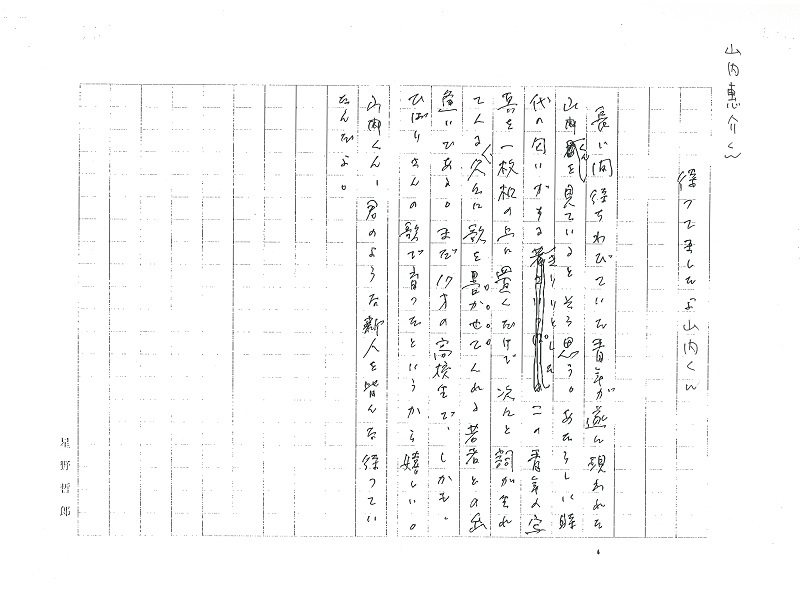 山内惠介くん
待ってましたよ山内くん
長い間待ちわびていた青年が遂に現われた。
山内くんを見ているとそう思う。あたらしい時
代の匂いがするきりりとしたこの青年の写
真を一枚机の上に置くだけで次々と詞が生れ
てくる久々に歌を書かせてくれる若者との出
逢いである。まだ17才の高校生で、しかも、
ひばりさんの歌で育ったというから嬉しい。
山内くん、君のような新人を皆んな待ってい
たんだよ。
星野哲郎